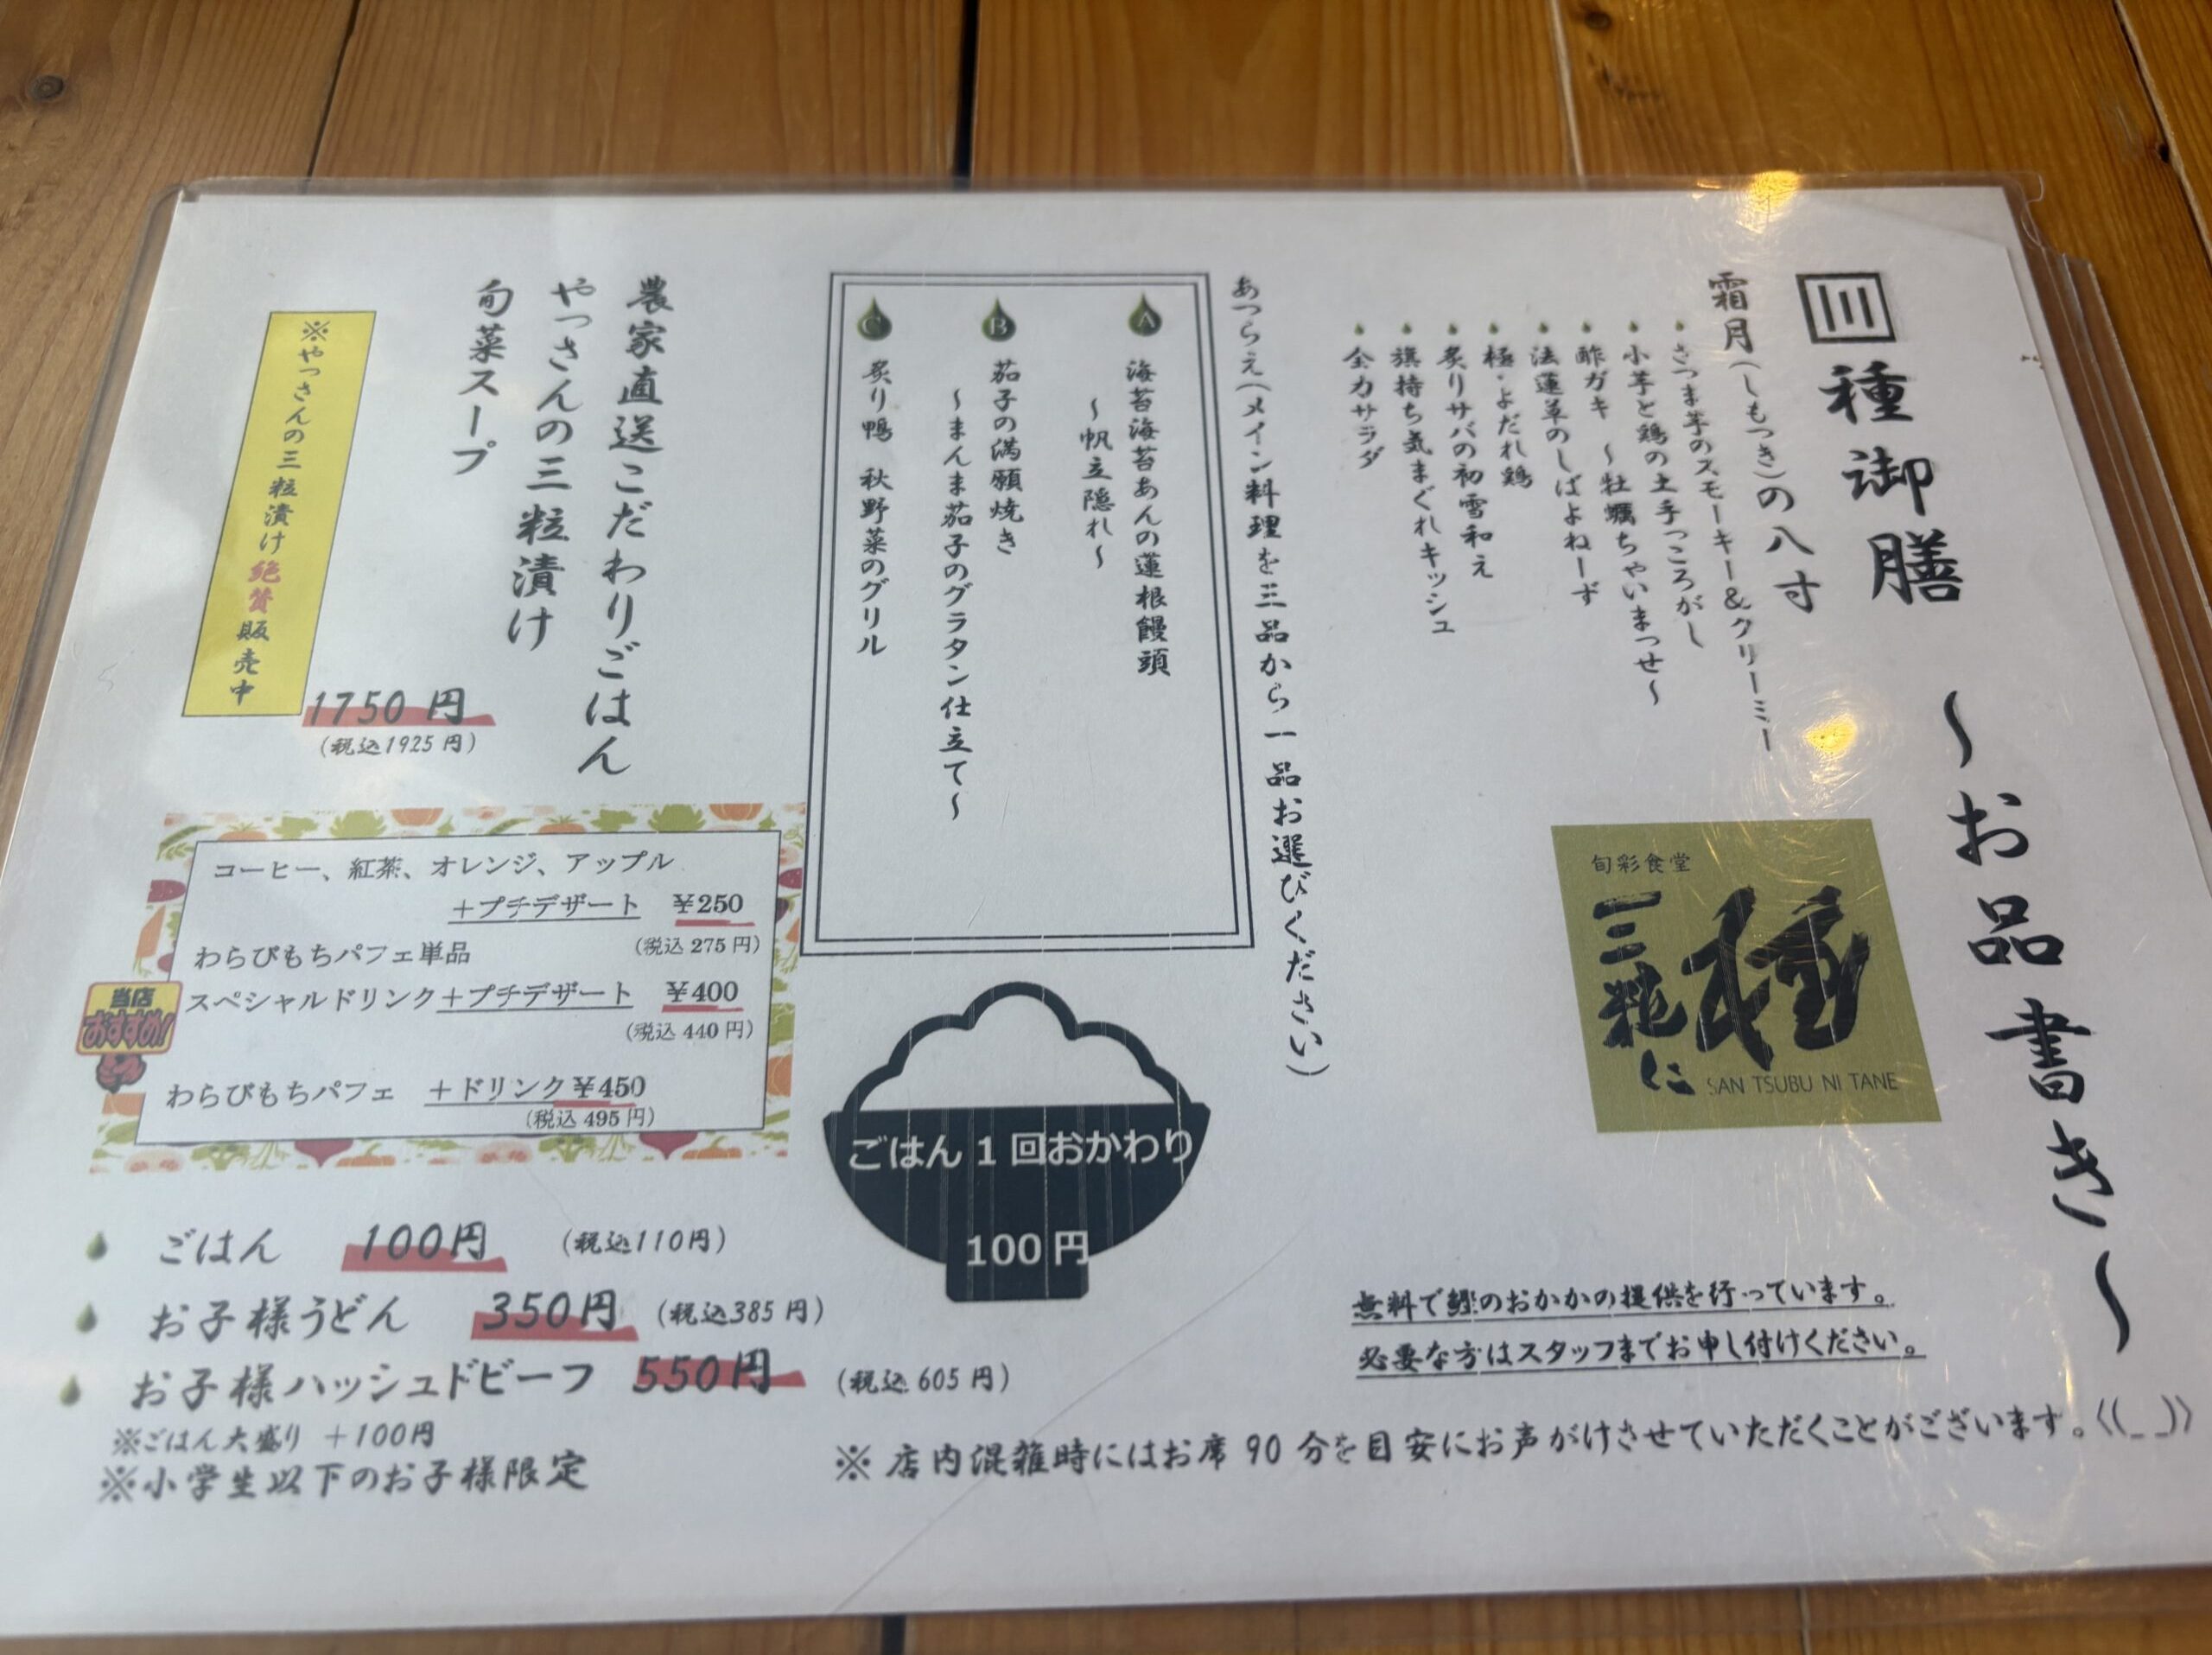 種御膳 ～お品書き～
霜月（しもつき）の八寸
さつま芋のスモーキー＆クリーミー
小芋と鶏の土手っころがし
酢ガキ ～牡蠣ちゃいまっせ～
法蓮草のしばよねーず
極・よだれ鶏
炙りサバの初雪和え
旗持ち気まぐれキッシュ
全力サラダ
旬彩食堂
三粒に
種
SAN TSUBU NI TANE
無料で鰹のおかかの提供を行っています。
必要な方はスタッフまでお申し付けください。
あつらえ（メイン料理を三品から一品お選びください）
A
海苔海苔あんの蓮根饅頭
～帆立隠れ～
B
茄子の満願焼き
～まんま茄子のグラタン仕立て～
C
炙り鴨 秋野菜のグリル
ごはん1回おかわり
100円
農家直送こだわりごはん
やっさんの三粒漬け
旬菜スープ
※やっさんの三粒漬け絶賛販売中
1750円
（税込1925円）
コーヒー、紅茶、オレンジ、アップル
＋プチデザート ￥250
（税込275円）
わらびもちパフェ単品
スペシャルドリンク＋プチデザート ￥400
（税込440円）
当店
おすすめ!
わらびもちパフェ ＋ドリンク￥450
（税込495円）
ごはん 100円 （税込110円）
お子様うどん 350円 （税込385円）
お子様ハッシュドビーフ 550円 （税込605円）
※ごはん大盛り ＋100円
※小学生以下のお子様限定
※店内混雑時にはお席90分を目安にお声がけさせていただくことがございます。<(_ _)>